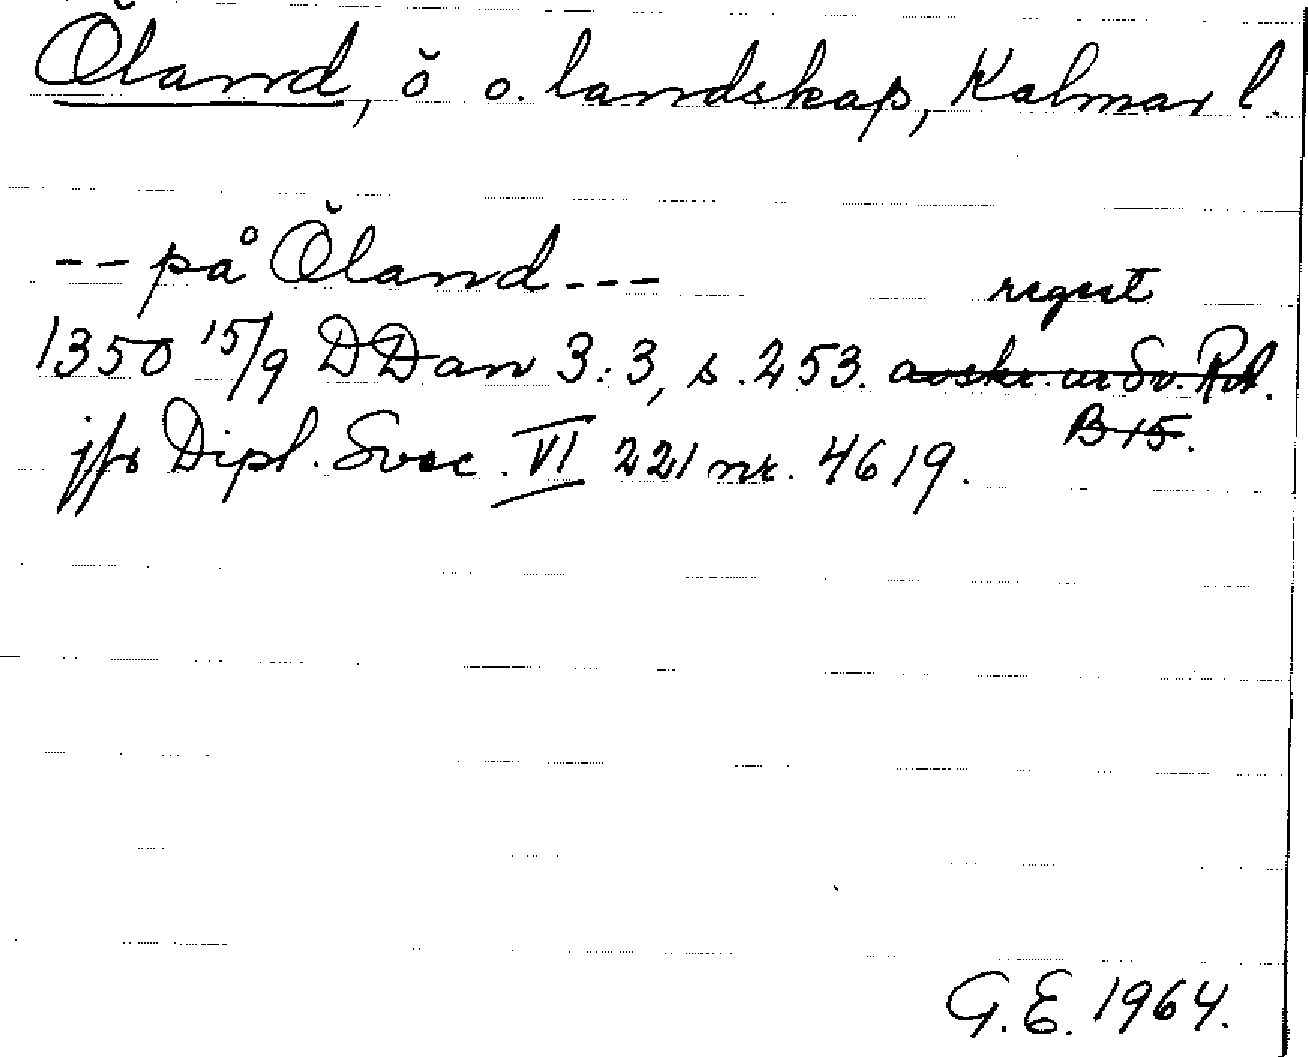 Öland, ö o. landskap, Kalmar l.
-- på Öland ---
regest
1350 15/9 DDan 3:3, s. 253. avskr. ur Sv. Rd.
B 15.
jfr Dipl. Svec. VI 221 nr. 4619.
G.E. 1964.